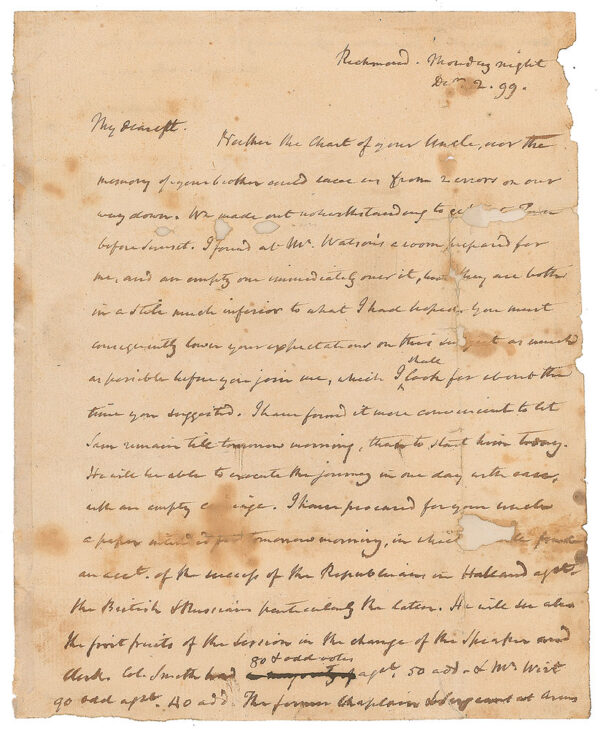 Richmond. Monday night
Decr. 2. 99.
My dearest. Neither the Chart of your Uncle, nor the
memory of your brother could save us from 2 errors on our
way down. We made out notwithstanding to get to Town
before Sunset. I found at Mr. Watson's a room prepared for
me, and an empty one immediately over it, but they are both
in a stile much inferior to what I had hoped. You must
consequently lower your expectations on this subject as much
as possible before you join me, which I shall look for about the
time you suggested. I have found it more convenient to let
Sam remain till tomorrow morning, than to start him today.
He will be able to execute the journey in one day with ease,
with an empty carriage. I have procured for your uncle
a paper tomorrow morning, in which
an acct. of the success of the Republicans in Holland agst.
the British & Russians particularly the latter. He will see also
the first fruits of the Session in the change of the Speaker and
Clerk. Col. Smith had 80 & odd votes agst. 50 odd. & Mr Wirt
90 odd agst. 40 odd. The former Chaplain & Sergeant at Arms